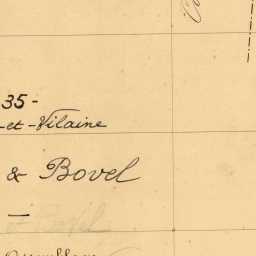 35-
-et-Vilaine
& Bovel